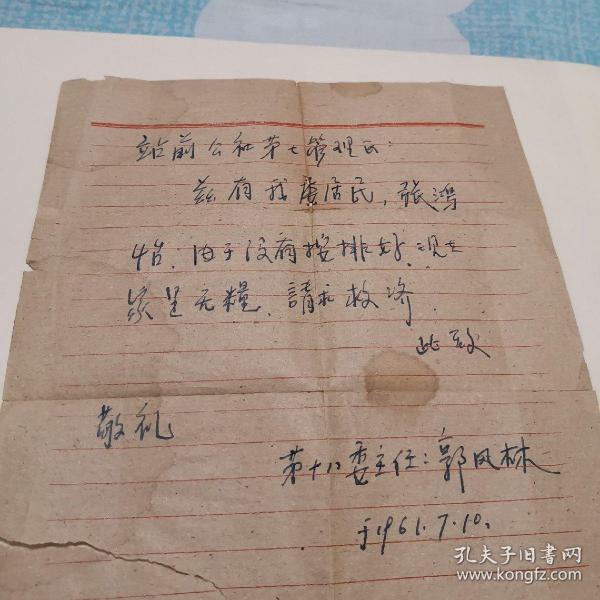 站前公社第七管理区:
兹有我委居民,张鸿
怡.由于没有按排好.现在
家里无糧、請求救济.
此致
敬礼
第十八委主任:郭凤林
于1961.7.10.
孔夫子旧書网
www.kongfz.com